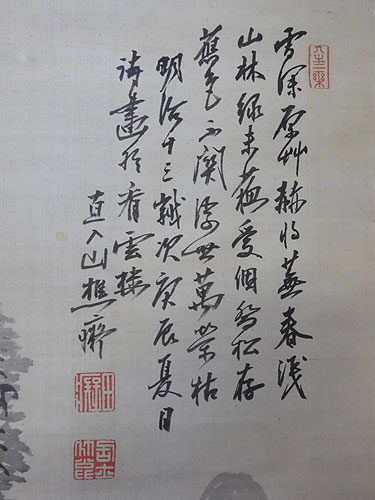 雪深原艸將蕪春淺
山林緑未蘇愛個松存
舊色不關浮世萬榮枯
明治十三載次庚辰夏日
詩畫於看雲樓
直入山樵癡